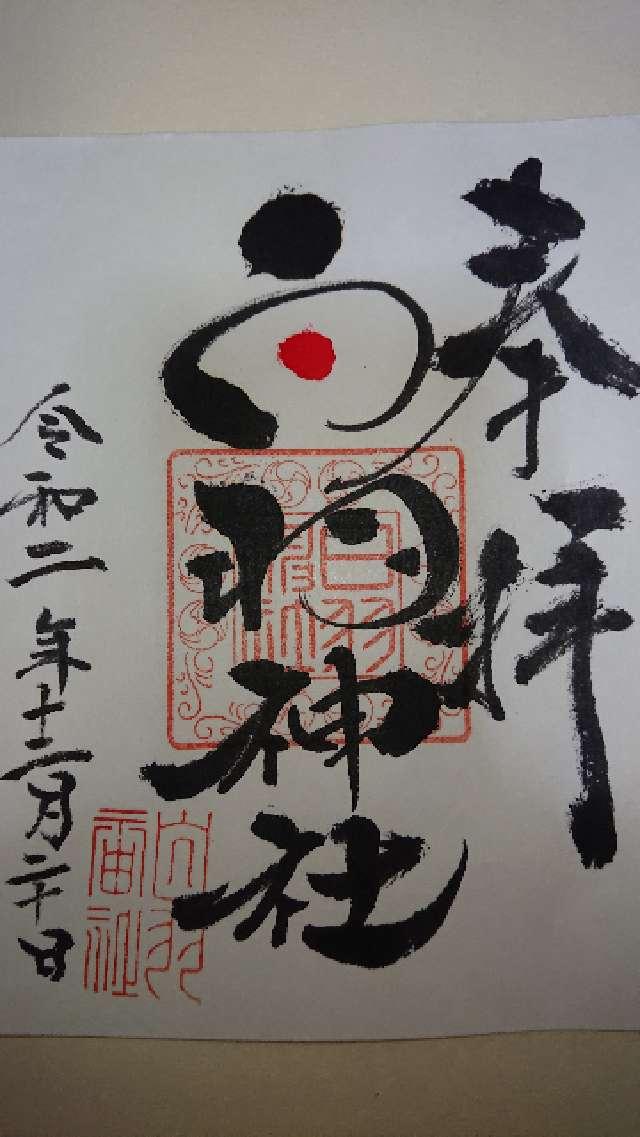 奉拝
白羽神社
令和二年十二月二十日